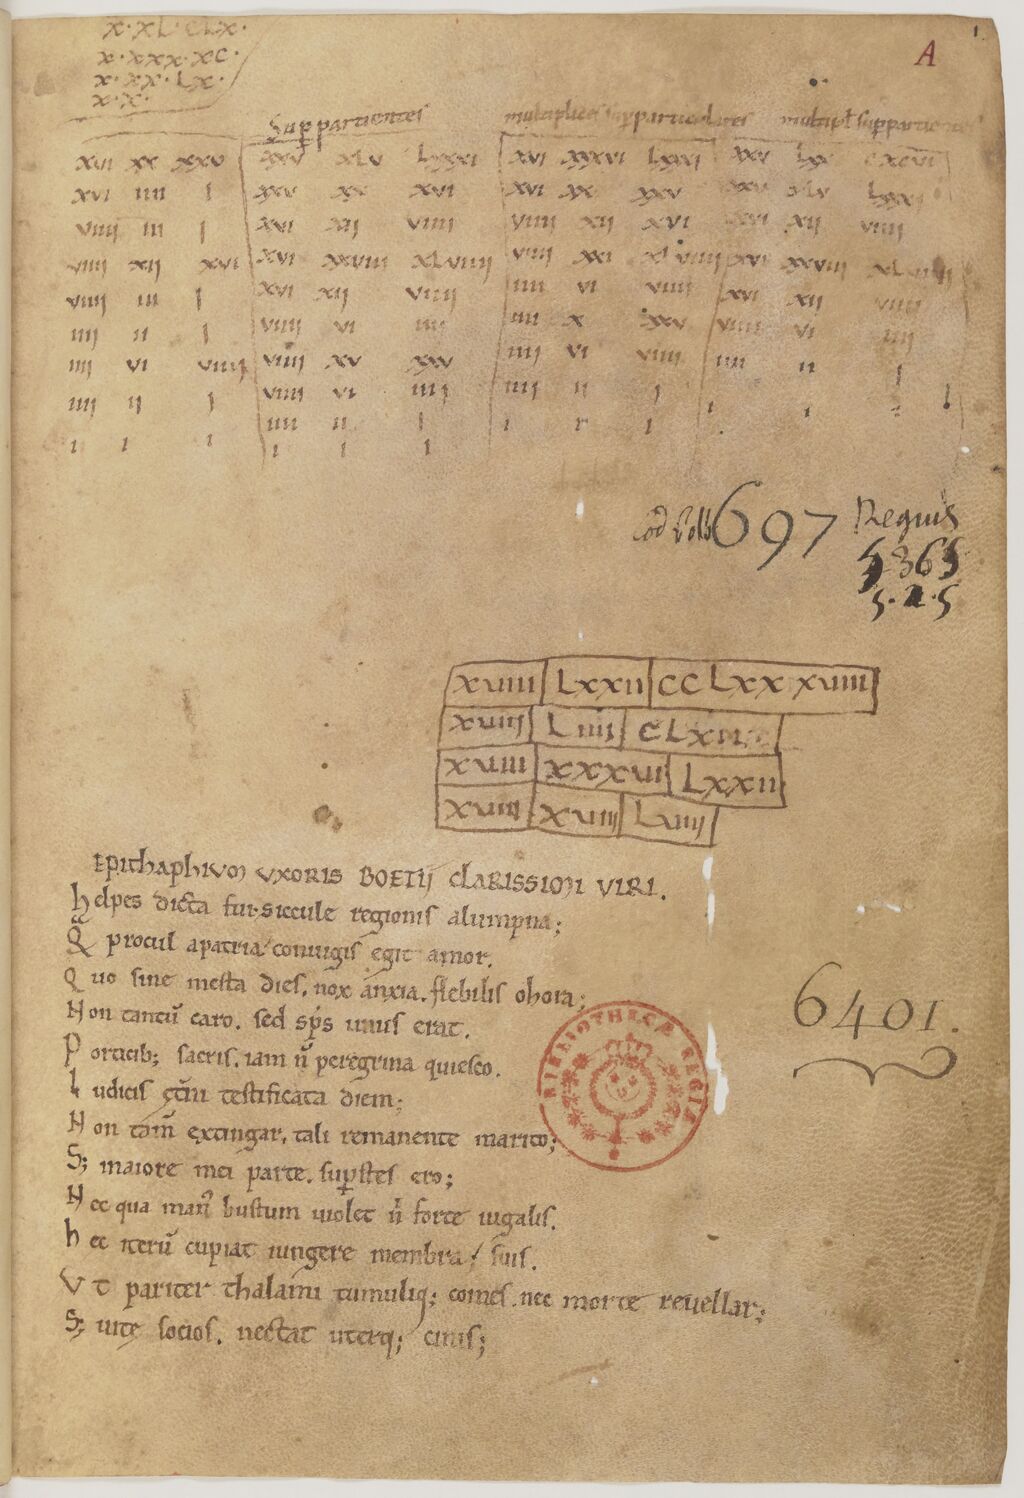 1.
A
x. xL. cLx.
x. xxx. xc.
x. xx. Lx.
x. x.
Sup partientes
multiplices supparticulares
xvi xx xxv xxv xLv Lxxxi xvi xxxvi Lxxxi xxv Lxx cxcvi
xvi iiii i xxv xx xvi xvi xx xxv xxv xLv Lxxxi
viiii iii i xvi xii viiii viiii xii xvi xvi xii viiii
viiii xii xvi xvi xxviii xLviiii viiii xxi xLviiii xvi xxviii xLviiii
viiii iii i xvi xii viiii iiii vi viiii xvi xii viiii
iiii ii i viiii vi iiii iiii x xxv viiii vi iiii
iiii vi viiii viiii xv xxv iiii vi viiii iiii ii i
iiii ii i viiii vi iiii iiii ii i i i
i i i iiii ii i i i
i i i
697 Regius
5365
5.2.5
xviii Lxxii CC Lxx xviii
xviii L iiii CLxii
xviii xxxvi Lxxii
xviii xviii Liiii
Epithaphium uxoris BOETII clarissimi viri.
Helpes dicta fui siccule regionis alumpna;
Q procul apatria coniugis egit amor.
Quo sine mesta dies, nox anxia, flebilis ohora;
Non tantū caro. sed sp̄s unus erat.
Porticib; sacris. iam n̄ peregrina quiesco.
Iudicis testificata diem;
Non tam̄ extingar, tali remanente marito;
S; maiore mei parte. supstes ero;
Nec qua man bustum violet n̄ forte iugalis.
hec iterū cupiat iungere membra suis.
Vt pariter thalami tumuliq; comes nec morte reuellar;
S; uitę socios. nectat uterq; cinis;
BIBLIOTHECÆ REGIÆ
6401.